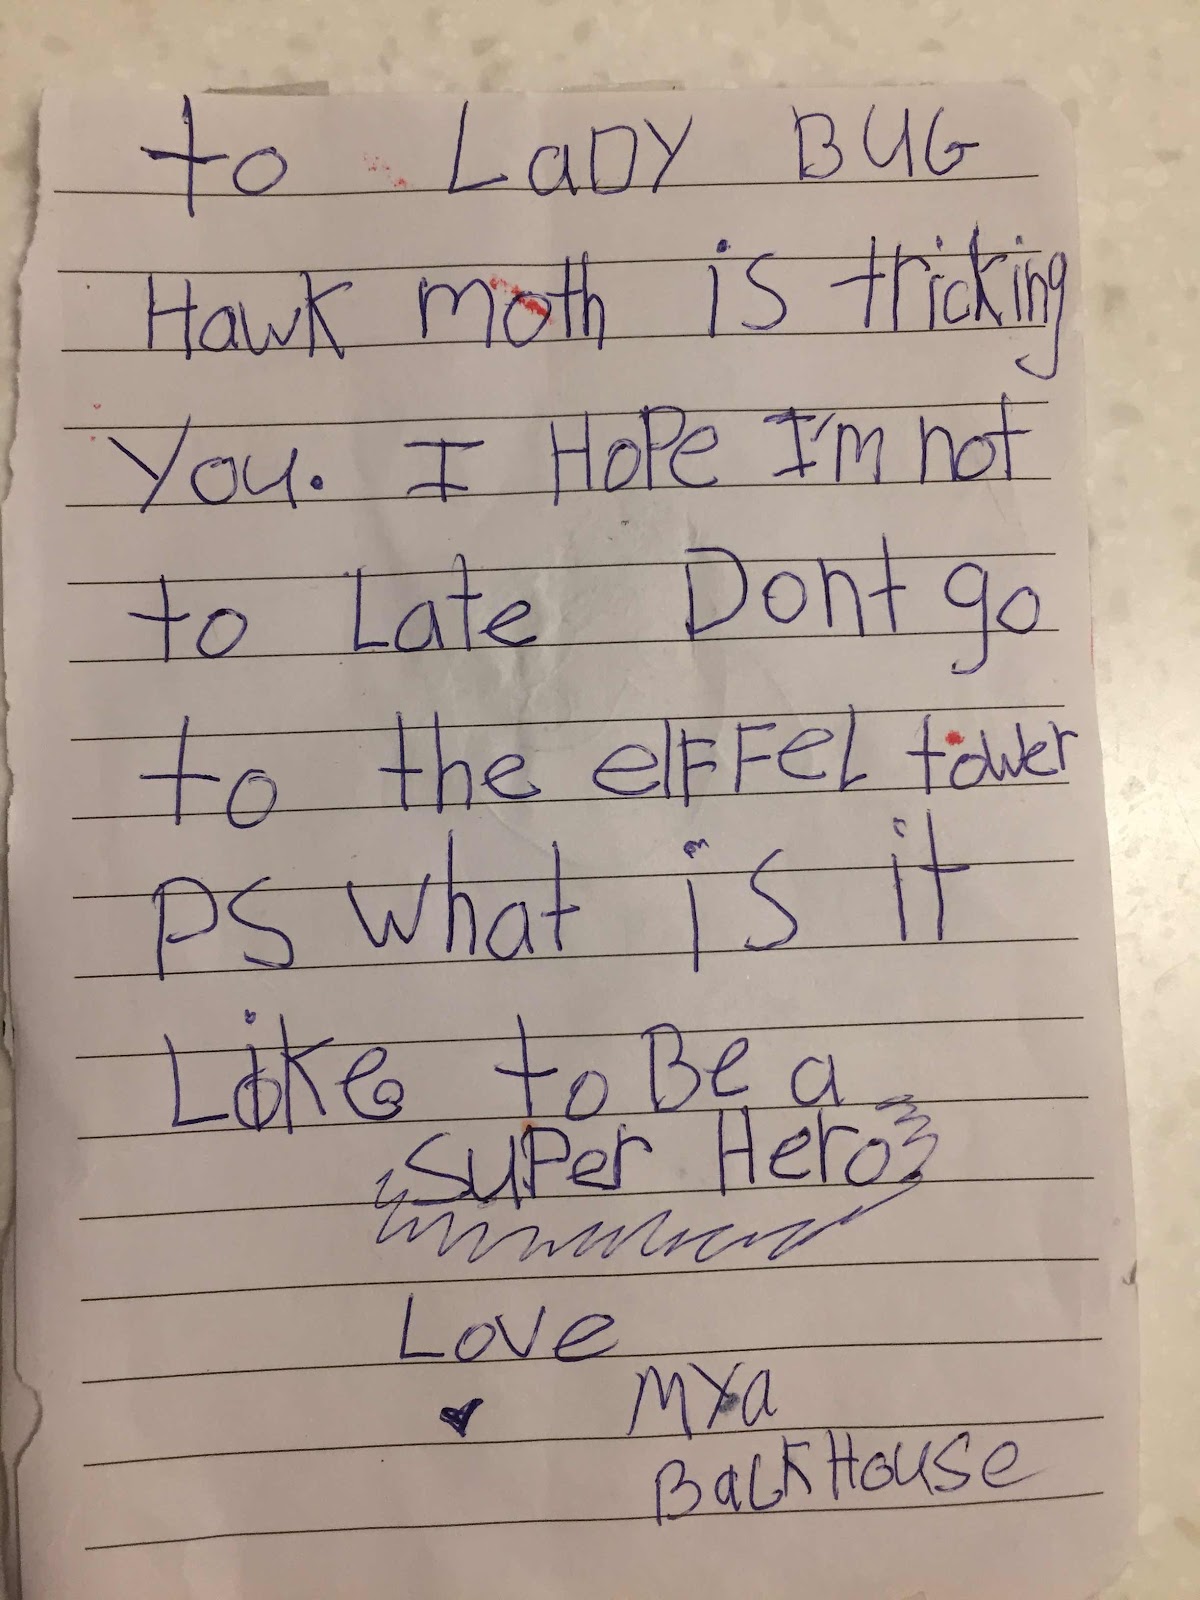 to LaDY BUG
Hawk moth is tricking
You. I HoPe I'm not
to Late Dont go
to the eIFFeL tower
PS what is it
Like to Be a
SUPer Hero
Love
MYa
BacKHouse